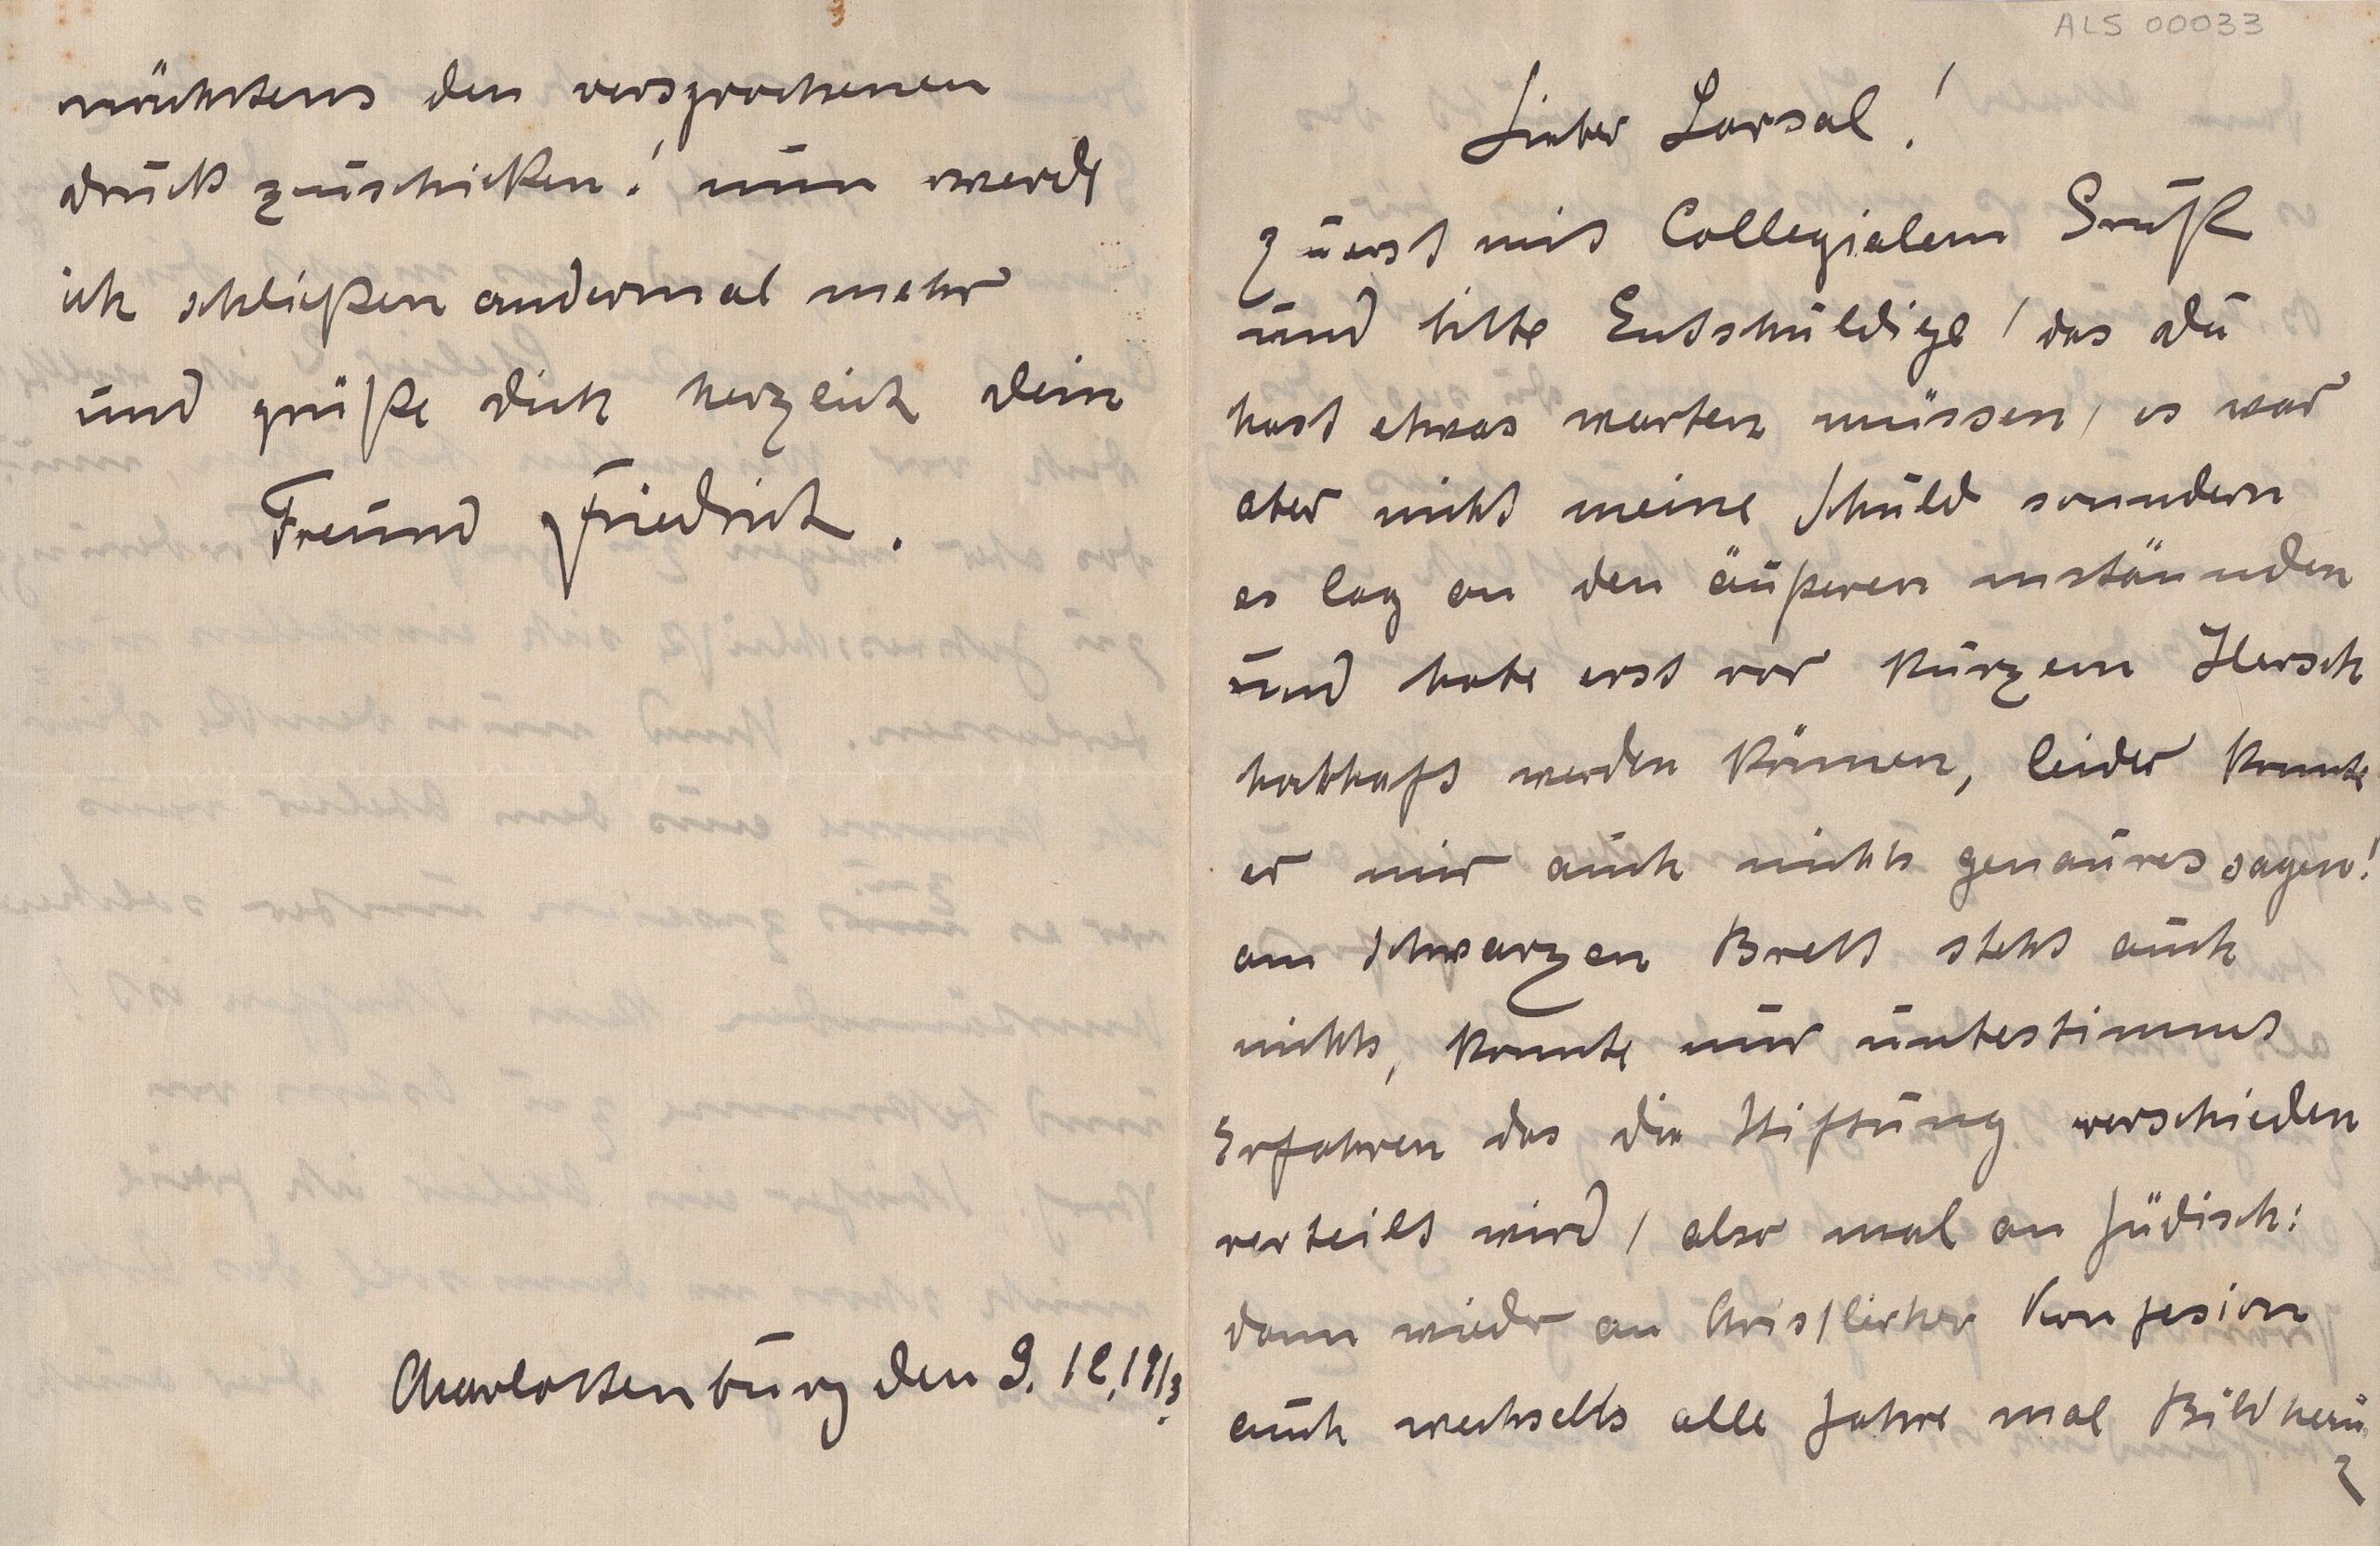 nächstens den versprochenen
druck zuschicken! nun werde
ich schließen andermal mehr
und grüße dich herzlich dein
Freund Friedrich.
Charlottenburg den 9. 12. 1913.
ALS 00033
Lieber Larsal!
Zuerst mit Collegialem Gruß
und bitte Entschuldige / das du
hast etwas warten müssen, es war
aber nicht meine Schuld sonndern
es lag an den äußeren umständen
und habe erst vor kurzem Hersch
habhaft werden können, leider konnte
er mir auch nichts genaures sagen!
am Schwarzen Brett steht auch
nichts, konnte nur unbestimmt
Erfahren das die Stiftung verschieden
verteilt wird / also mal an Jüdisch:
dann wieder an Christlicher Konfesion
auch wechselts alle Jahre mal Bildhau